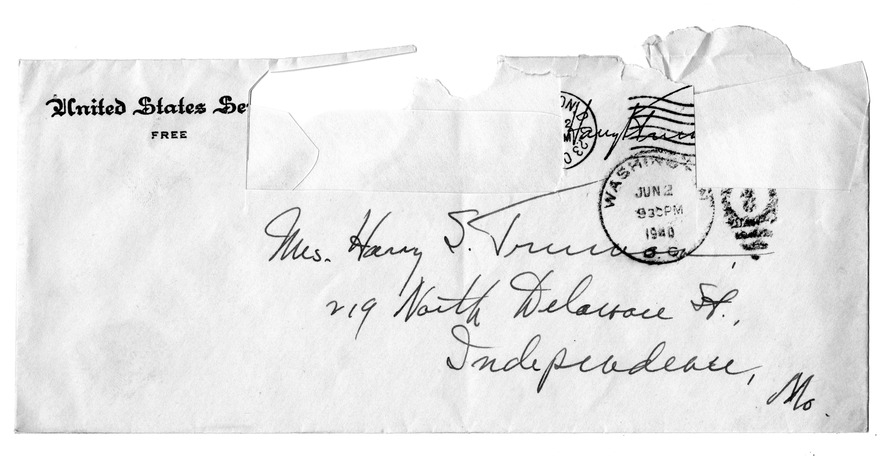 United States Se
FREE
Harry
WASHING
JUN 2
930 PM
1940
D.C.
Mrs. Harry S. Truman,
219 North Delaware St.,
Independence,
Mo.